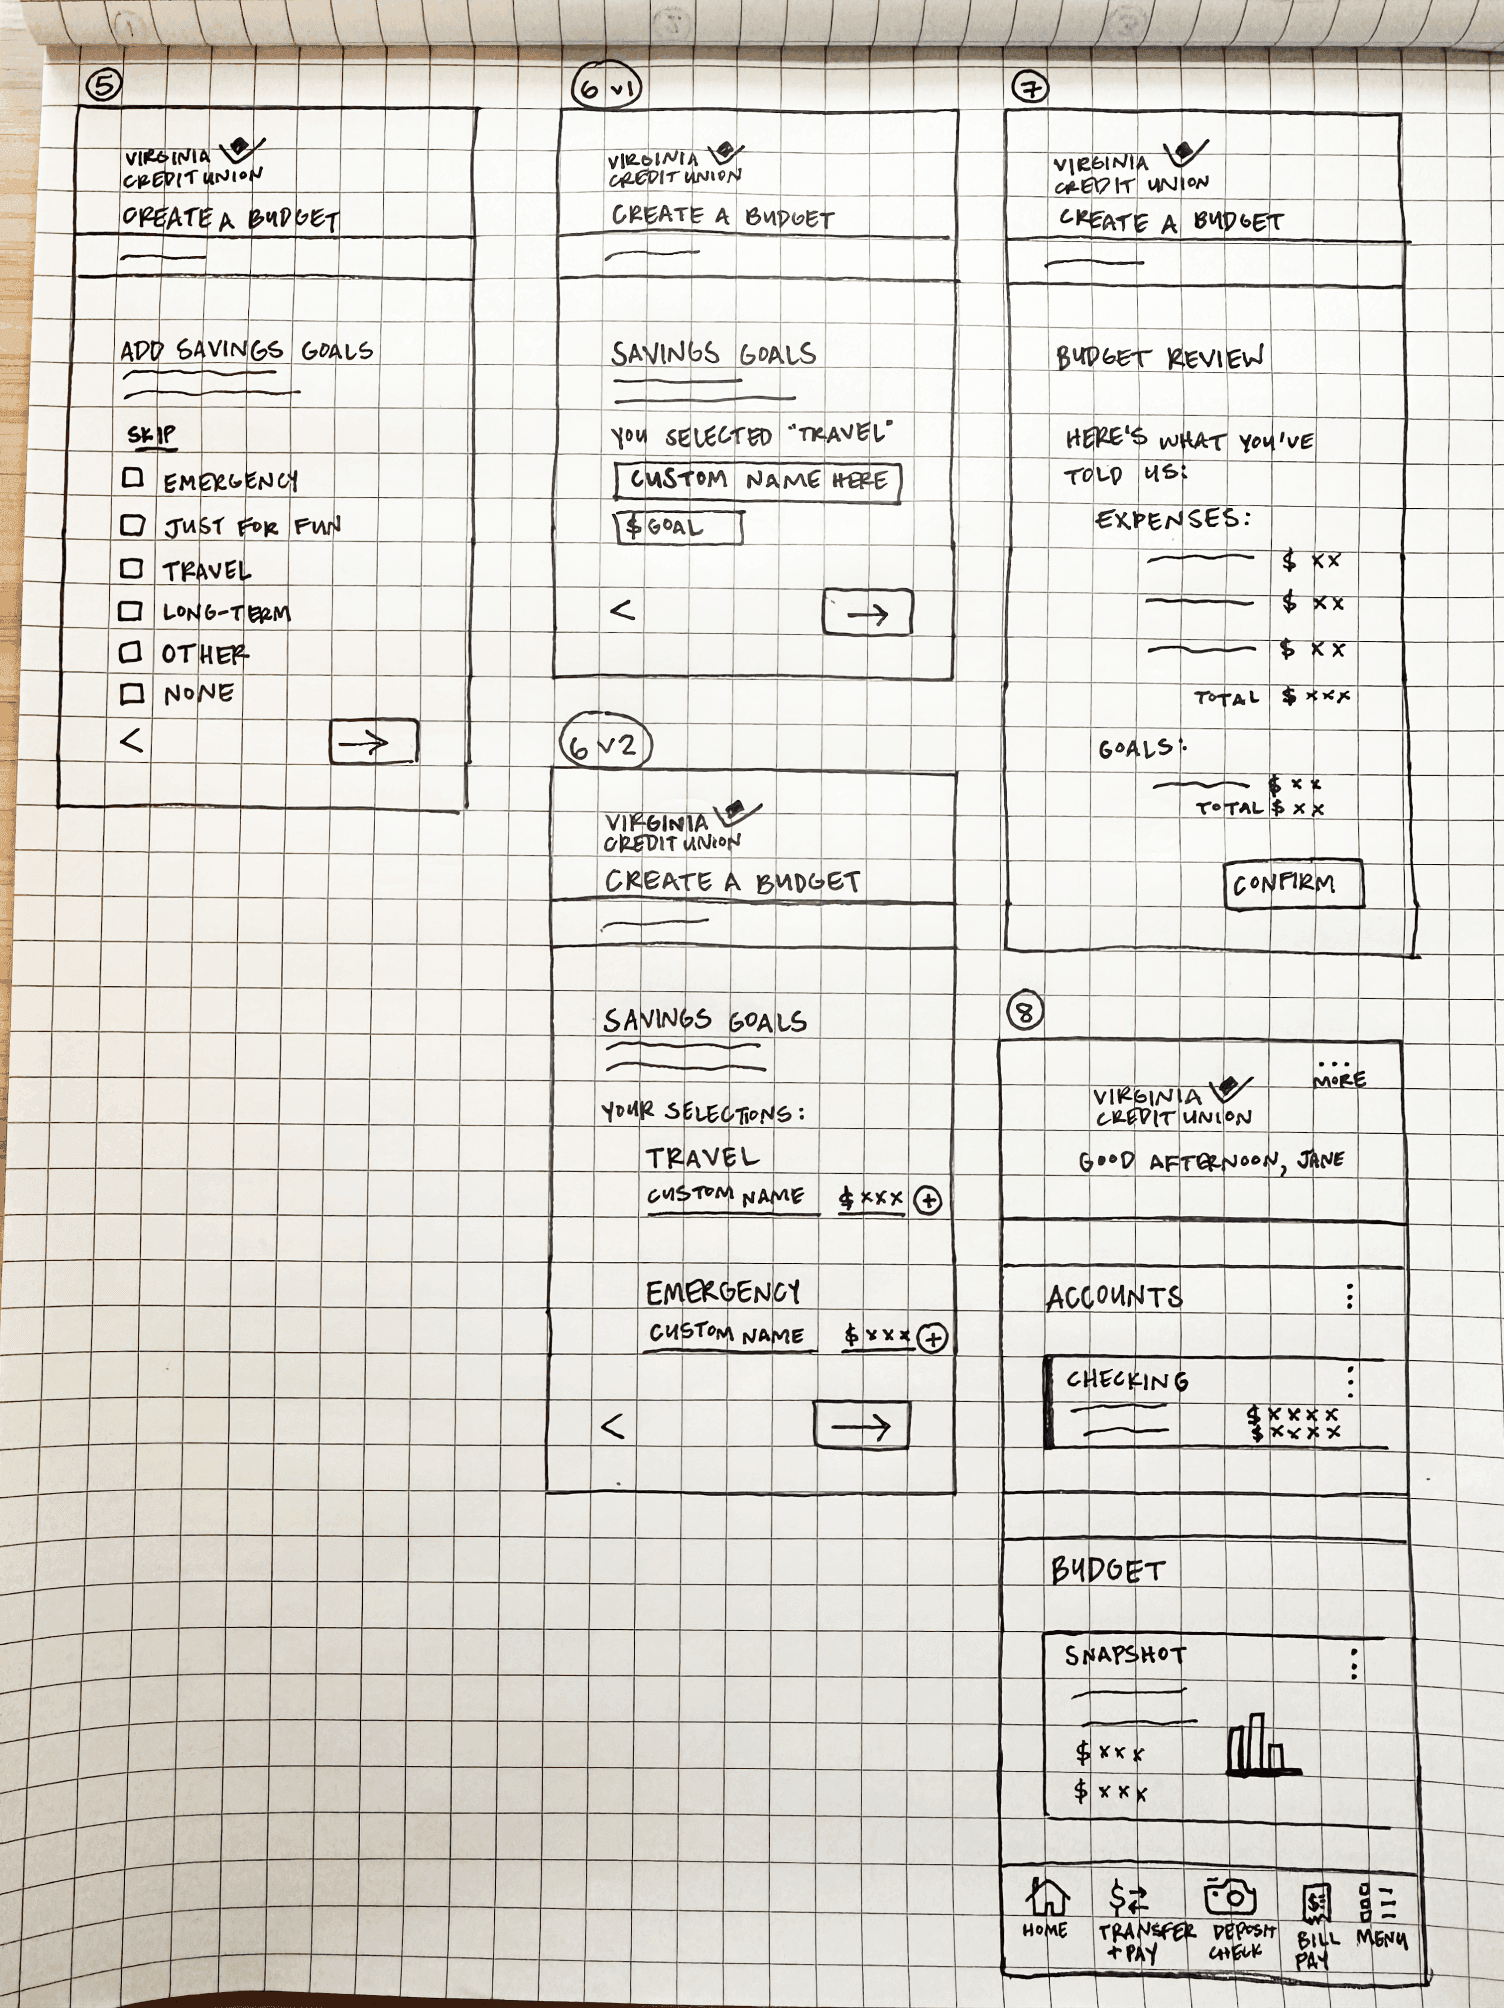 5
VIRGINIA
CREDIT UNION
CREATE A BUDGET
ADD SAVINGS GOALS
SKIP
EMERGENCY
JUST FOR FUN
TRAVEL
LONG-TERM
OTHER
NONE
<
→
6 v1
VIRGINIA
CREDIT UNION
CREATE A BUDGET
SAVINGS GOALS
YOU SELECTED "TRAVEL"
CUSTOM NAME HERE
$ GOAL
<
→
6 v2
VIRGINIA
CREDIT UNION
CREATE A BUDGET
SAVINGS GOALS
YOUR SELECTIONS:
TRAVEL
CUSTOM NAME $ xxx +
EMERGENCY
CUSTOM NAME $ xxx +
<
→
7
VIRGINIA
CREDIT UNION
CREATE A BUDGET
BUDGET REVIEW
HERE'S WHAT YOU'VE
TOLD US:
EXPENSES:
$ xx
$ xx
$ xx
TOTAL $ xxx
GOALS:
$ xx
TOTAL $ xx
CONFIRM
8
... MORE
VIRGINIA
CREDIT UNION
GOOD AFTERNOON, JANE
ACCOUNTS
CHECKING
$ xxxx
$ xxxx
BUDGET
SNAPSHOT
$ xxx
$ xxx
HOME
TRANSFER
+ PAY
DEPOSIT
CHECK
BILL
PAY
MENU